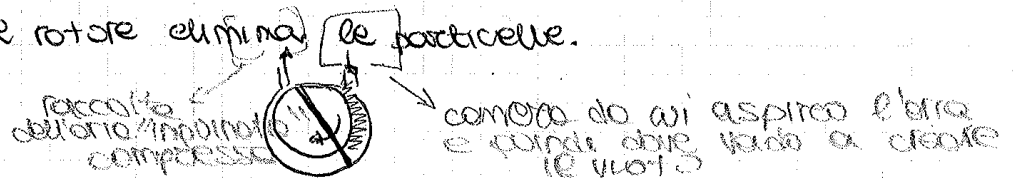 e rotore elimina le particelle.
raccolta
dell'aria "inquinata"
compressa
camera da cui aspiro l'aria
e quindi dove vado a creare
il vuoto